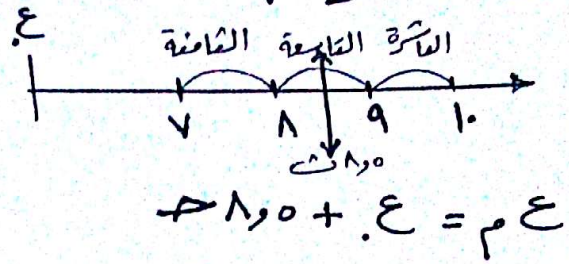 ع.
الثامنة التاسعة العاشرة
٧ ٨ ٩ ١٠
٨,٥ ث
ع م = ع. + ٨,٥ حـ